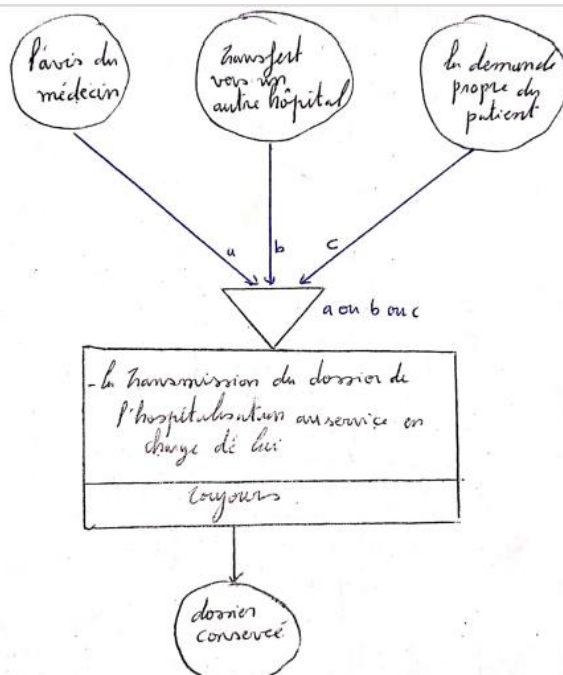 l'avis du
médecin
Transfert
vers un
autre hôpital
la demande
propre du
patient
a
b
c
a ou b ou c
- la Transmission du dossier de
l'hospitalisation au service en
charge dé lui
Toujours
dossier
conservé